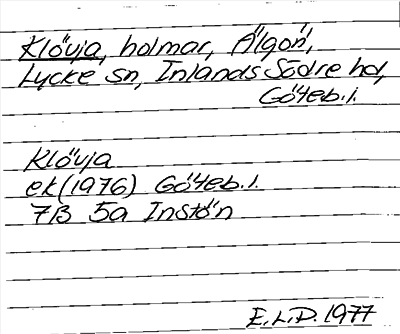 Klövja, holmar, Älgön,
Lycke sn, Inlands Södre hd,
Göteb.l.
Klövja
ek (1976) Göteb.l.
7B 5a Instön
E.L.D. 1977